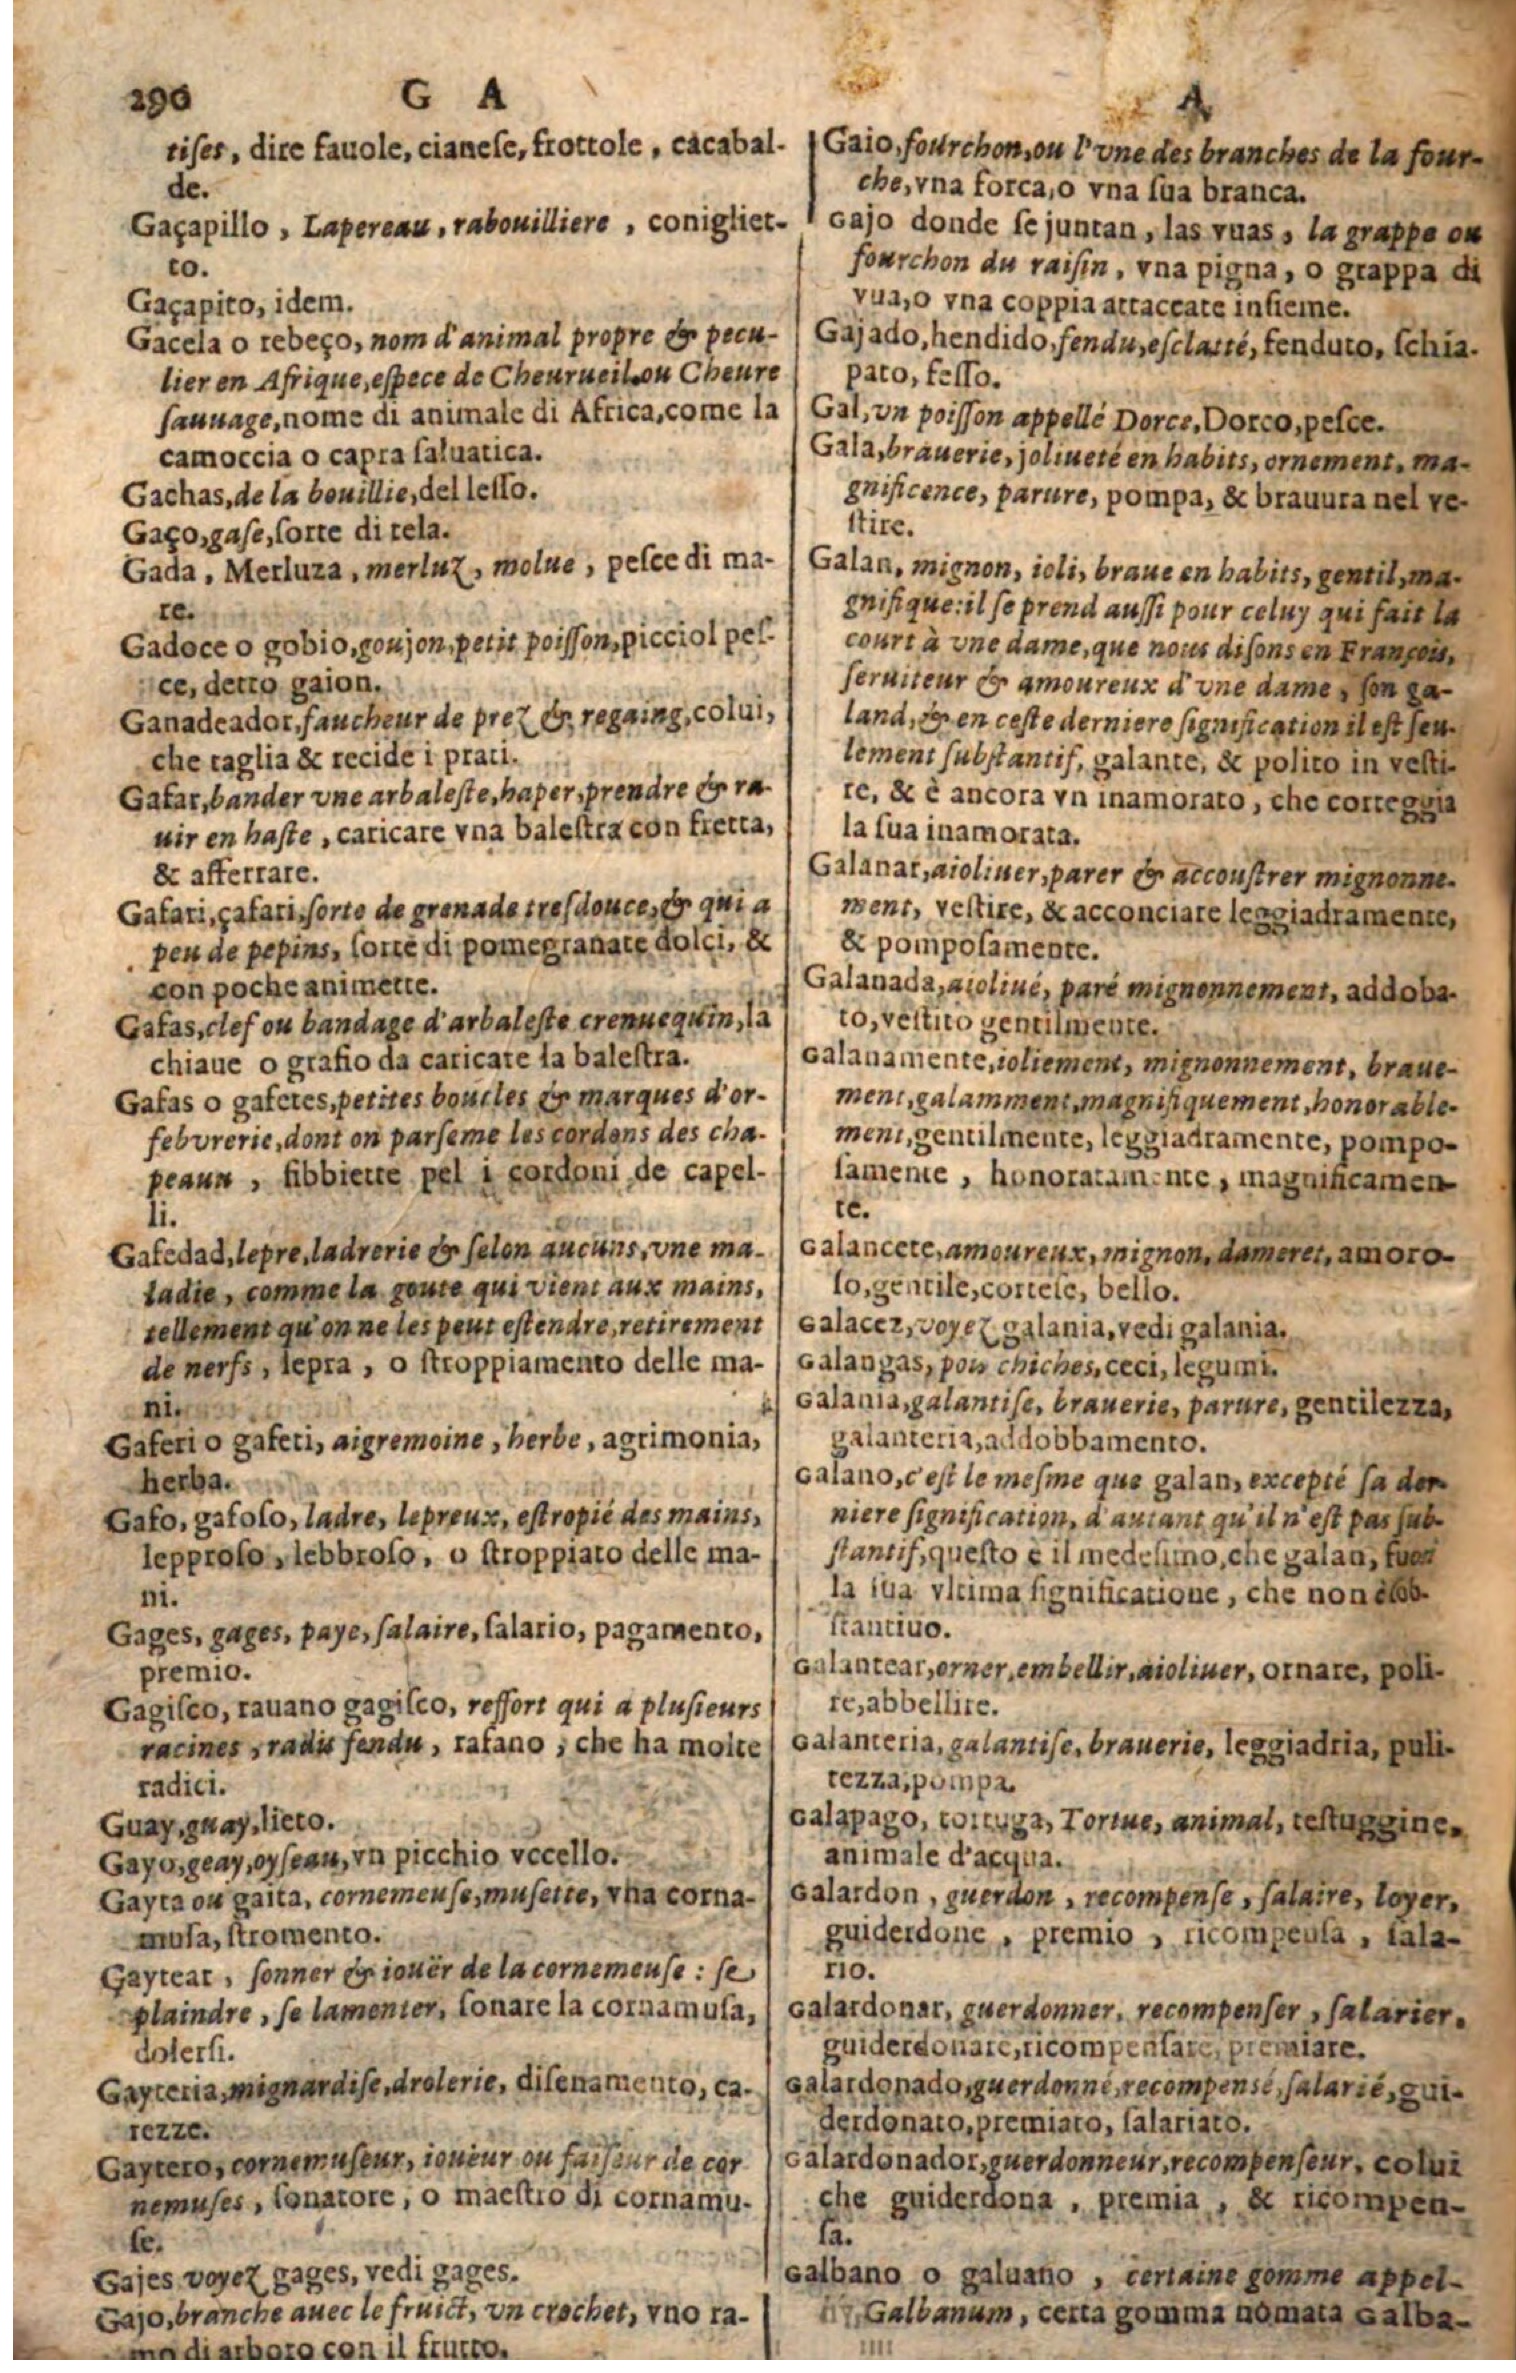 290 G A
tiſes, dire fauole, cianeſe, frottole, cacabal-
de.
Gaçapillo, Lapereau, rabouilliere, conigliet-
to.
Gaçapito, idem.
Gacela o rebeço, nom d'animal propre & pecu-
lier en Afrique, eſpece de Cheurueil ou Cheure
ſauuage, nome di animale di Africa, come la
camoccia o capra ſaluatica.
Gachas, de la bouillie, del leſſo.
Gaço, gaſe, ſorte di tela.
Gada, Merluza, merluz, molue, peſce di ma-
re.
Gadoce o gobio, goujon, petit poiſſon, picciol peſ-
ce, detto gaion.
Ganadeador, faucheur de prez & regaing, colui,
che taglia & recide i prati.
Gafar, bander vne arbaleſte, haper, prendre & ra-
uir en haſte, caricare vna baleſtra con fretta,
& afferrare.
Gafari, çafari, ſorte de grenade treſdouce, & qui a
peu de pepins, ſorte di pomegranate dolci, &
con poche animette.
Gafas, clef ou bandage d'arbaleſte crennequin, la
chiaue o grafio da caricare la baleſtra.
Gafas o gafetes, petites boucles & marques d'or-
febvrerie, dont on parſeme les cordons des cha-
peaux, fibbiette pel i cordoni de capel-
li.
Gafedad, lepre, ladrerie & ſelon aucuns, vne ma-
ladie, comme la goute qui vient aux mains,
tellement qu'on ne les peut eſtendre, retirement
de nerfs, lepra, o ſtroppiamento delle ma-
ni.
Gaferi o gafeti, aigremoine, herbe, agrimonia,
herba.
Gafo, gafoſo, ladre, lepreux, eſtropié des mains,
lepproſo, lebbroſo, o ſtroppiato delle ma-
ni.
Gages, gages, paye, ſalaire, ſalario, pagamento,
premio.
Gagiſco, rauano gagiſco, reffort qui a pluſieurs
racines, radis fendu, rafano, che ha molte
radici.
Guay, guay, lieto.
Gayo, geay, oyſeau, vn picchio vccello.
Gayta ou gaita, cornemeuſe, muſette, vna corna-
muſa, ſtromento.
Gaytear, ſonner & iouër de la cornemeuſe: ſe
plaindre, ſe lamenter, ſonare la cornamuſa,
dolerſi.
Gayteria, mignardiſe, drolerie, diſenamento, ca-
rezze.
Gaytero, cornemuſeur, ioueur ou faiſeur de cor
nemuſes, ſonatore, o maeſtro di cornamu-
ſe.
Gajes voyez gages, vedi gages.
Gajo, branche auec le fruict, vn crochet, vno ra-
mo di arboro con il frutto.
A
Gaio, fourchon, ou l'vne des branches de la four-
che, vna forca, o vna ſua branca.
Gajo donde ſe juntan, las vuas, la grappe ou
fourchon du raiſin, vna pigna, o grappa di
vua, o vna coppia attaccate inſieme.
Gajado, hendido, fendu, eſclatté, fenduto, ſchia-
pato, feſſo.
Gal, vn poiſſon appellé Dorce, Dorco, peſce.
Gala, brauerie, joliueté en habits, ornement, ma-
gnificence, parure, pompa, & brauura nel ve-
ſtire.
Galan, mignon, ioli, braue en habits, gentil, ma-
gnifique: il ſe prend auſſi pour celuy qui fait la
court à vne dame, que nous diſons en François,
ſeruiteur & amoureux d'vne dame, ſon ga-
land, & en ceſte derniere ſignification il eſt ſeu-
lement ſubſtantif, galante, & polito in veſti-
re, & è ancora vn inamorato, che corteggia
la ſua inamorata.
Galanar, aioliuer, parer & accouſtrer mignonne-
ment, veſtire, & acconciare leggiadramente,
& pompoſamente.
Galanada, aioliué, paré mignonnement, addoba-
to, veſtito gentilmente.
Galanamente, ioliement, mignonnement, braue-
ment, galamment, magnifiquement, honorable-
ment, gentilmente, leggiadramente, pompo-
ſamente, honoratamente, magnificamen-
te.
Galancete, amoureux, mignon, dameret, amoro-
ſo, gentile, corteſe, bello.
Galacez, voyez galania, vedi galania.
Galangas, pois chiches, ceci, legumi.
Galania, galantiſe, brauerie, parure, gentilezza,
galanteria, addobbamento.
Galano, c'eſt le meſme que galan, excepté ſa der-
niere ſignification, d'autant qu'il n'eſt pas ſub-
ſtantif, queſto è il medeſimo, che galan, fuori
la ſua vltima ſignificatione, che non è ſob-
ſtantiuo.
Galantear, orner, embellir, aioliuer, ornare, poli-
re, abbellire.
Galanteria, galantiſe, brauerie, leggiadria, puli-
tezza, pompa.
Galapago, tortuga, Tortue, animal, teſtuggine,
animale d'acqua.
Galardon, guerdon, recompenſe, ſalaire, loyer,
guiderdone, premio, ricompenſa, ſala-
rio.
Galardonar, guerdonner, recompenſer, ſalarier,
guiderdonare, ricompenſare, premiare.
Galardonado, guerdonné, recompenſé, ſalarié, gui-
derdonato, premiato, ſalariato.
Galardonador, guerdonneur, recompenſeur, colui
che guiderdona, premia, & ricompen-
ſa.
Galbano o galuano, certaine gomme appel-
Galbanum, certa gomma nomata Galba-